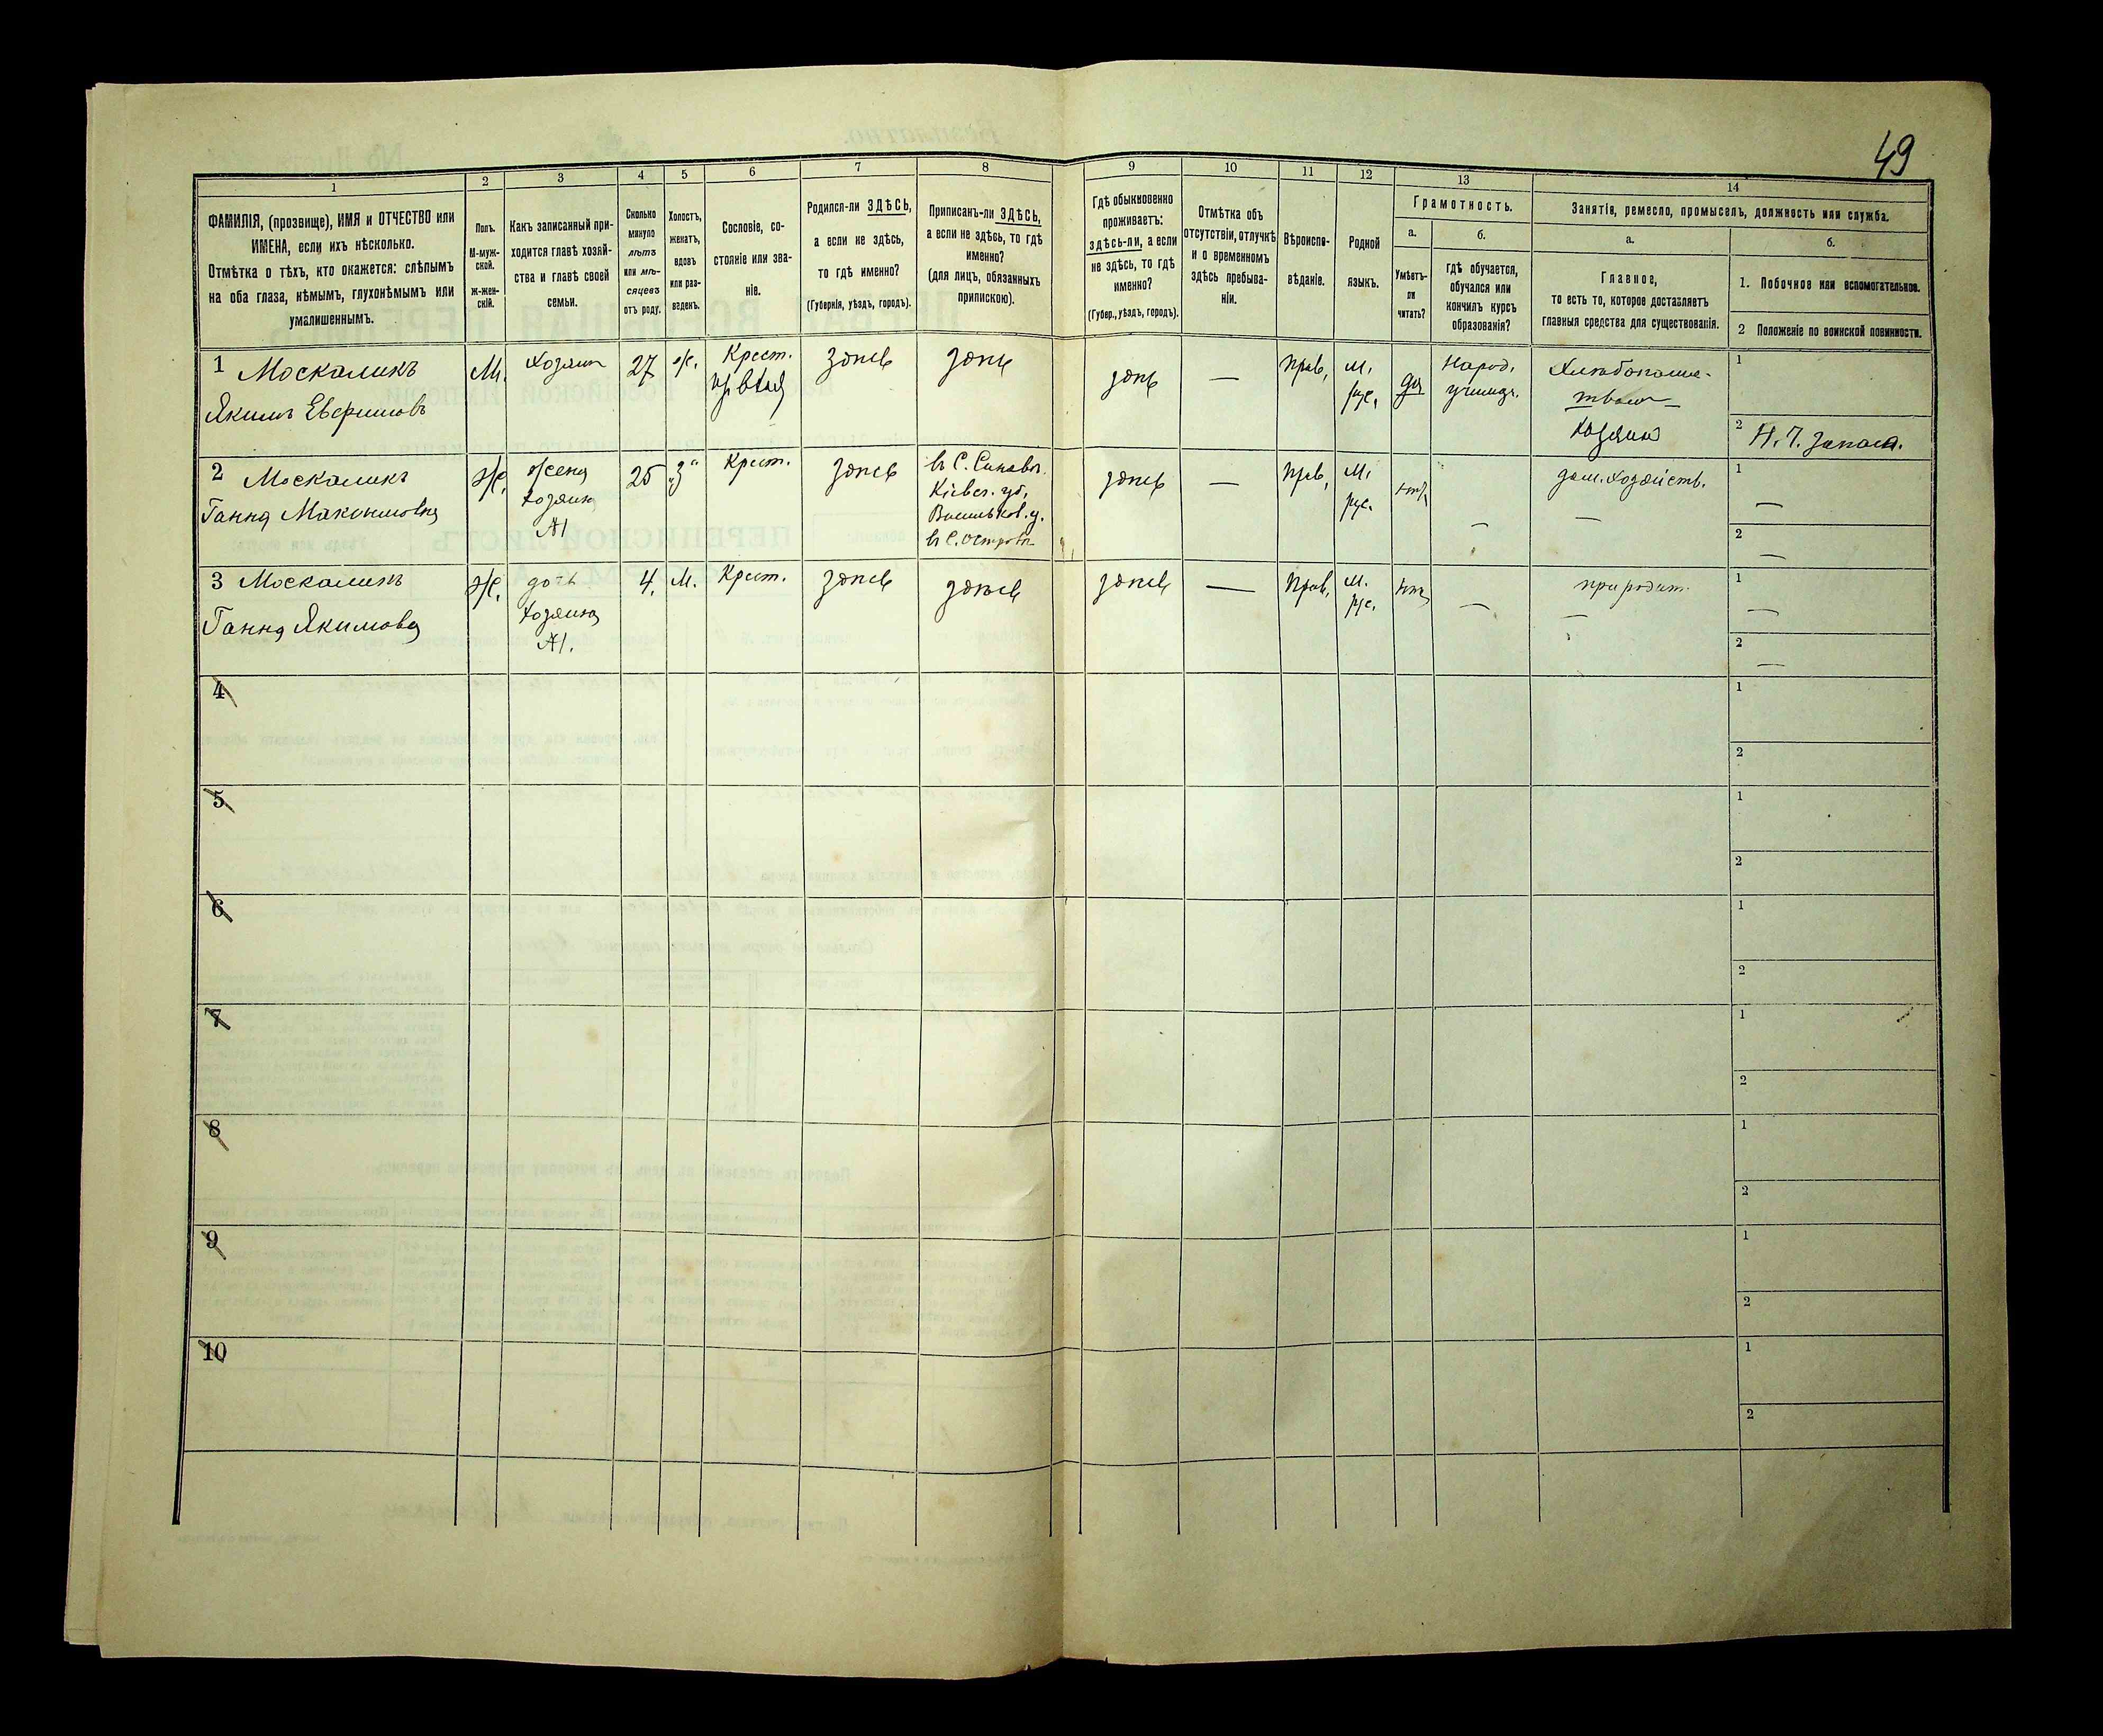 49
1
2
3
4
5
6
7
8
9
10
11
12
13
14
ФАМИЛІЯ, (прозвище), ИМЯ и ОТЧЕСТВО или
ИМЕНА, если ихъ нѣсколько.
Отмѣтка о тѣхъ, кто окажется: слѣпымъ
на оба глаза, нѣмымъ, глухонѣмымъ или
умалишеннымъ.
Полъ.
М-муж-
ской.
Ж-жен-
скій.
Какъ записанный при-
ходится главѣ хозяй-
ства и главѣ своей
семьи.
Сколько
минуло
лѣтъ
или мѣ-
сяцевъ
отъ роду.
Холостъ,
женатъ,
вдовъ
или раз-
веденъ.
Сословіе, со-
стояніе или зва-
ніе.
Родился-ли ЗДѢСЬ,
а если не здѣсь,
то гдѣ именно?
(Губернія, уѣздъ, городъ).
Приписанъ-ли ЗДѢСЬ,
а если не здѣсь, то гдѣ
именно?
(для лицъ, обязанныхъ
припискою).
Гдѣ обыкновенно
проживаетъ:
здѣсь-ли, а если
не здѣсь, то гдѣ
именно?
(Губер., уѣздъ, городъ).
Отмѣтка объ
отсутствіи, отлучкѣ
и о временномъ
здѣсь пребыва-
ніи.
Вѣроиспо-
вѣданіе.
Родной
языкъ.
Грамотность.
а.
Умѣетъ-
ли
читать?
б.
Гдѣ обучается,
обучался или
кончилъ курсъ
образованія?
Занятія, ремесло, промыселъ, должность или служба.
а.
Главное,
то есть то, которое доставляетъ
главныя средства для существованія.
б.
1. Побочное или вспомогательное.
2 Положеніе по воинской повинности.
1 Москаликъ
Якимъ Евфимовъ
М.
хозяин
27
ж.
Крест.
здѣсь
здѣсь
здѣсь
—
Прав.
М.
рус.
да
Народ.
училищ.
Хлѣбопаше-
ством
хозяин
1
2 Н. Ч. запаса.
2 Москаликъ
Ганна Максимовна
ж.
жена
хозяина
№1
25
з
Крест.
здѣсь
Кіевск. губ.
Васильков. у.
здѣсь
—
Прав.
М.
рус.
нѣт
—
дом. хозяйств.
—
1 —
2 —
3 Москаликъ
Ганна Якимова
ж.
дочь
хозяина
№1.
4.
М.
Крест.
здѣсь
здѣсь
здѣсь
—
Прав.
М.
рус.
нѣт
—
при родит.
—
1 —
2 —
4
1
2
5
1
2
6
1
2
7
1
2
8
1
2
9
1
2
10
1
2